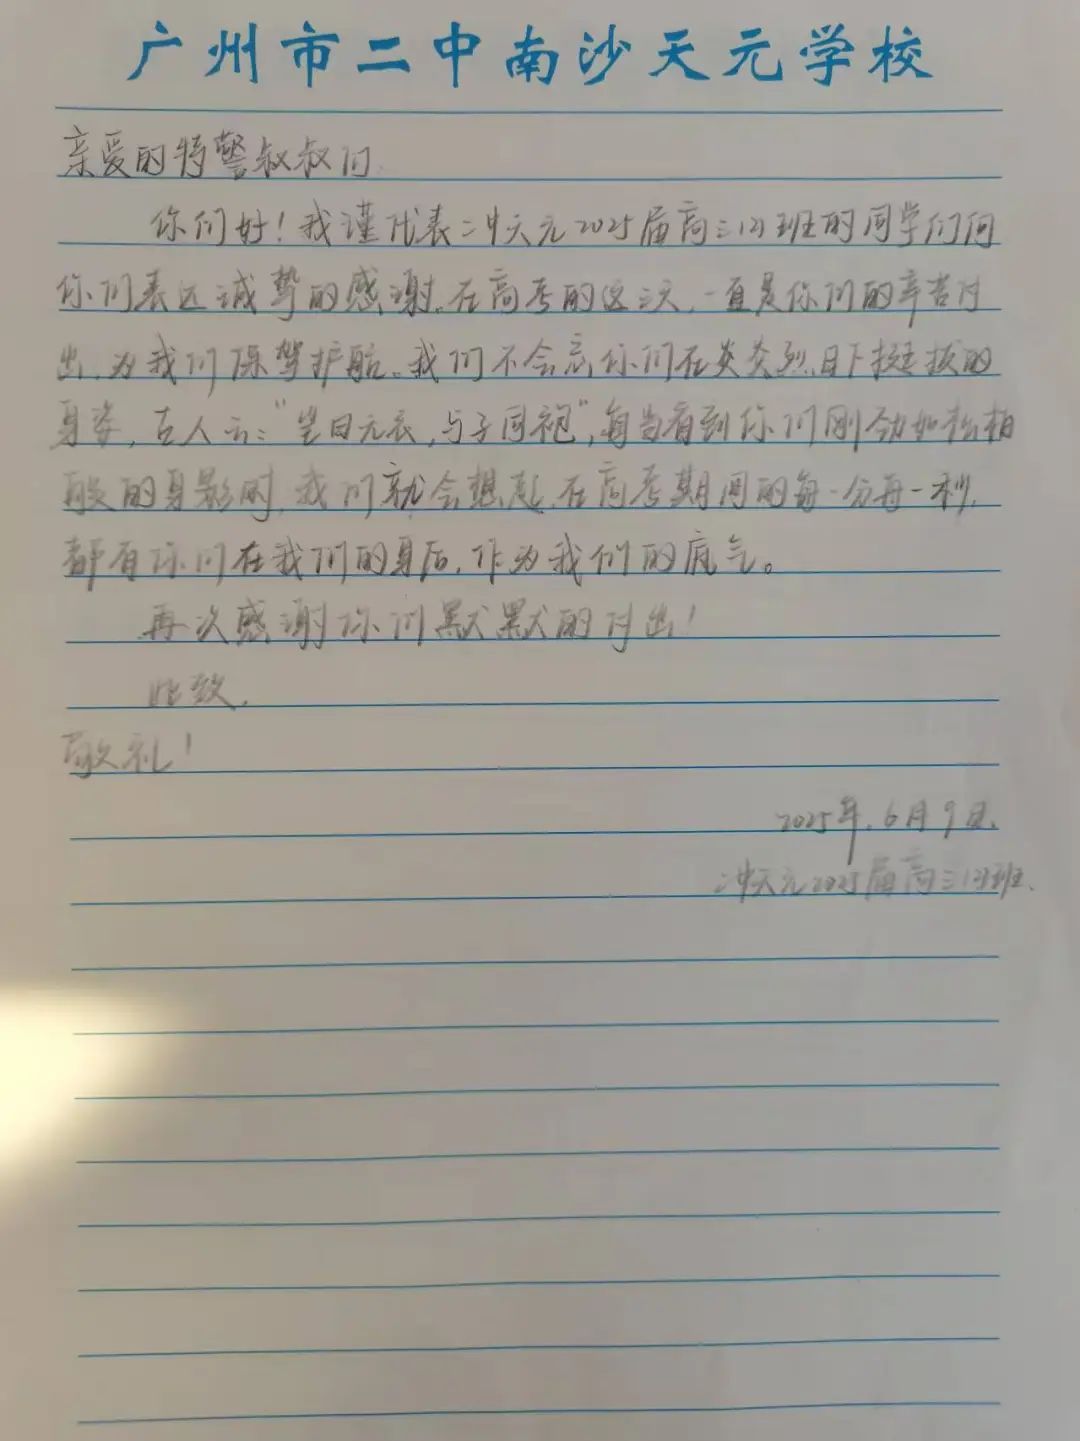 广州市二中南沙天元学校
亲爱的特警叔叔们
你们好！我谨代表二中天元2025届高三12班的同学们向
你们表达诚挚的感谢。在高考的这三天，一直是你们的辛苦付
出，为我们保驾护航。我们不会忘你们在炎炎烈日下挺拔的
身姿，古人云：“岂曰无衣，与子同袍”，每当看到你们刚劲如松柏
般的身影时，我们就会想起，在高考期间的每一分每一秒，
都有你们在我们的身后，作为我们的底气。
再次感谢你们默默的付出！
此致，
敬礼！
2025年，6月9日、
二中天元2025届高三12班、